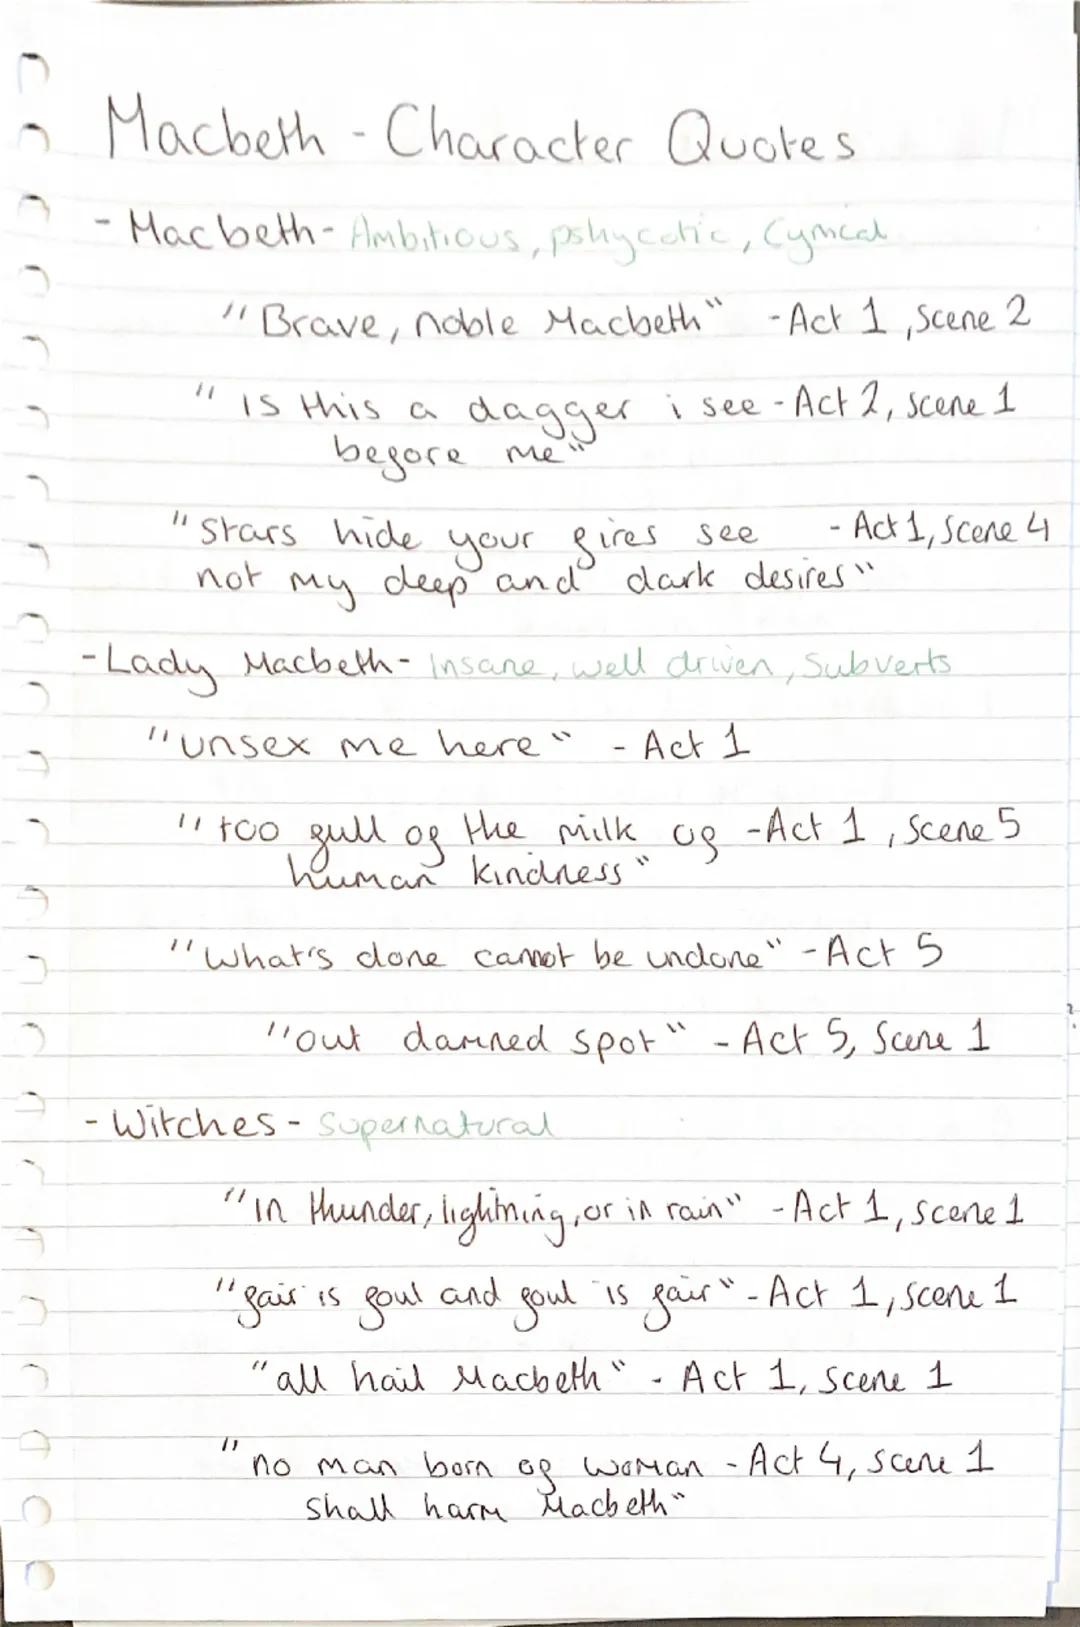 Macbeth - Character Quotes
- Macbeth - Ambitious, pshycotic, Cynical
"Brave, noble Macbeth" - Act 1, Scene 2
"Is this a dagger i see - Act 2, scene 1
before me"
"Stars hide your fires see - Act 1, Scene 4
not my deep and dark desires"
- Lady Macbeth - Insane, well driven, Subverts
"unsex me here" - Act 1
"too full of the milk of - Act 1, Scene 5
human kindness"
"What's done cannot be undone" - Act 5
"Out damned spot" - Act 5, Scene 1
- Witches - Supernatural
"In thunder, lightning, or in rain" - Act 1, scene 1
"fair is foul and foul is fair" - Act 1, scene 1
"all hail Macbeth" - Act 1, scene 1
"no man born of woman - Act 4, scene 1
shall harm Macbeth"